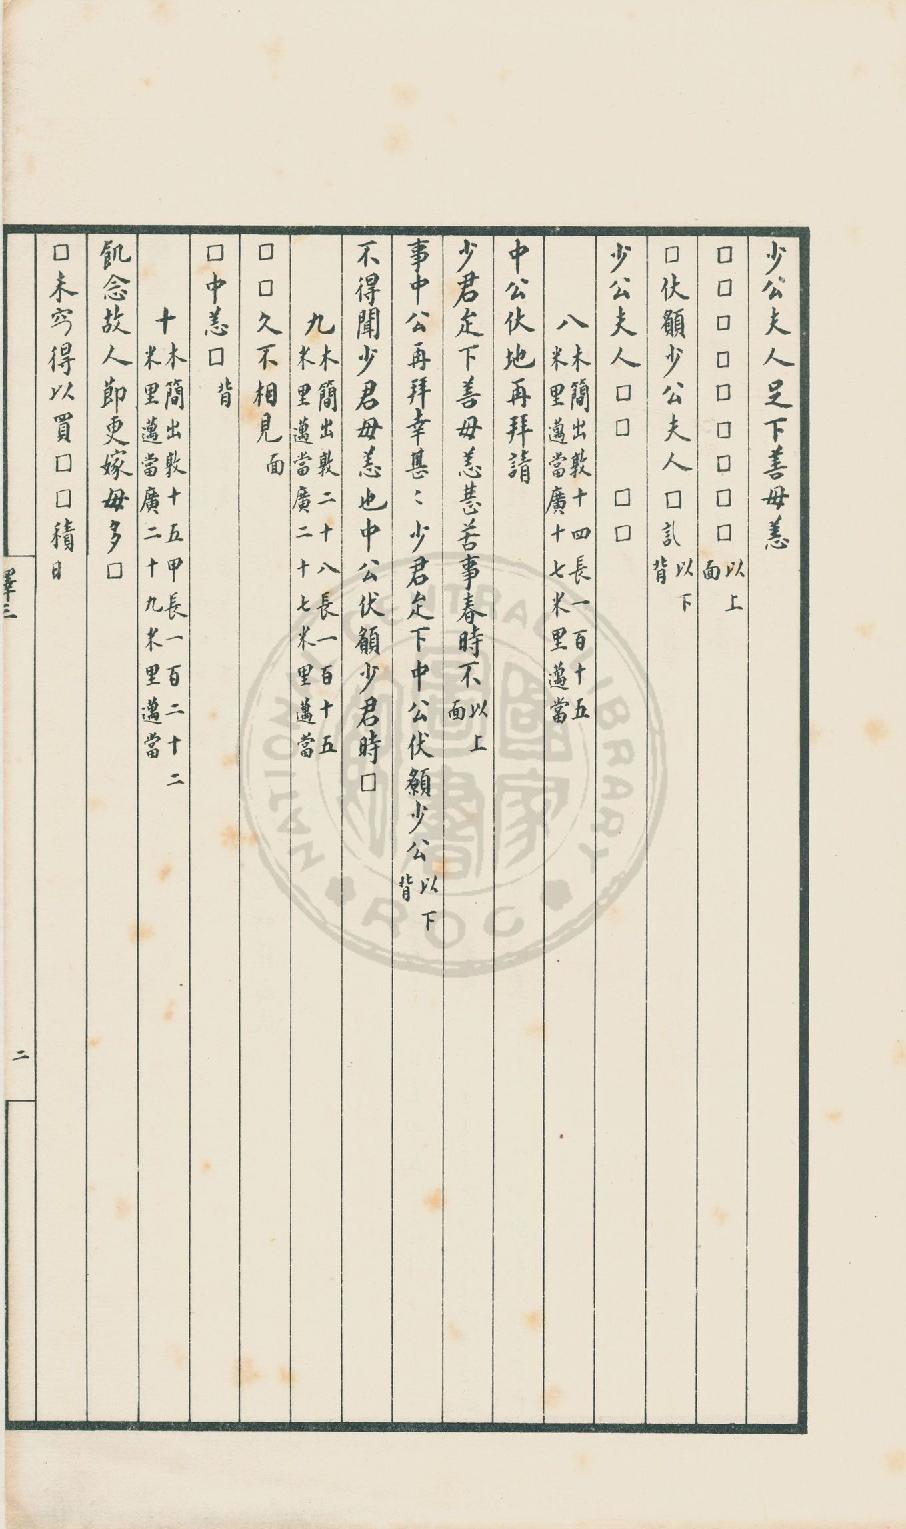 少公夫人足下善毋恙
□□□□□□□□□以上面
□伏願少公夫人□訊以下背
少公夫人□□　□□
八木簡出敦十四長一百十五
米里邁當廣十七米里邁當
中公伏地再拜請
少君足下善毋恙甚苦事春時不以上面
事中公再拜幸甚〻少君足下中公伏願少公以下背
不得聞少君毋恙也中公伏願少君時□
九木簡出敦二十八長一百十五
米里邁當廣二十七米里邁當
□□久不相見面
□中恙□背
十木簡出敦十五甲長一百二十二
米里邁當廣二十九米里邁當
飢念故人節更嫁毋多□
□未䆒得以買□□積日
釋三
二
NATIONAL CENTRAL LIBRARY
ROC
國家圖書